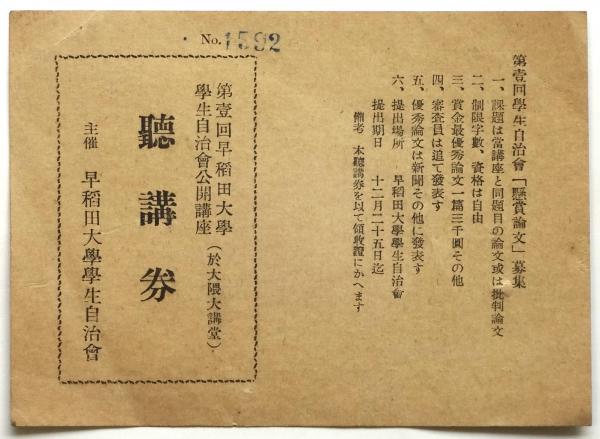 第壹回學生自治會「懸賞論文」募集
一、課題は當講座と同題目の論文或は批判論文
二、制限字數、資格は自由
三、賞金最優秀論文一篇三千圓その他
四、審査員は追て發表す
五、優秀論文は新聞その他に發表す
六、提出場所 早稻田大學學生自治會
提出期日 十二月二十五日迄
備考 本聽講券を以て領收證にかへます
No. 1592
第壹回早稻田大學
學生自治會公開講座(於大隈大講堂)
聽講券
主催 早稻田大學學生自治會